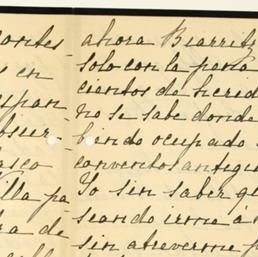 ontes-
s en
upan
bser-
asco
illa pa
ra de
ahora Biarritz
solo con la pena
cientos de herid
no se sabe donde
biendo ocupado
conventos antigu
Yo sin saber qu
seando irme á
sin atreverme p